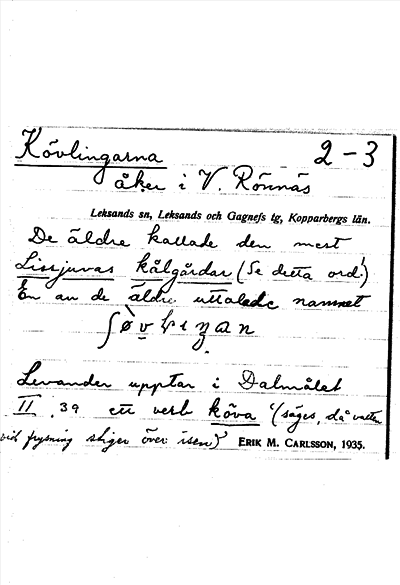 Kövlingarna 2-3
åker i V. Rönnäs
Leksands sn, Leksands och Gagnefs tg, Kopparbergs län.
De äldre kallade den mest
Lissjuvas kålgårdar (Se detta ord!)
En av de äldre uttalade namnet
Levander upptar i Dalmålet
II, 39 ett verb köva "(säges, då vatten
vid frysning stiger över isen)" ERIK M. CARLSSON, 1935.